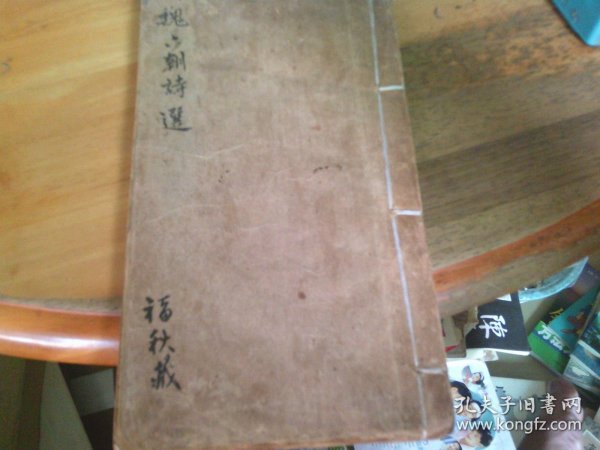 六朝詩選
福秋藏
孔夫子旧書网
www.kongfz.com